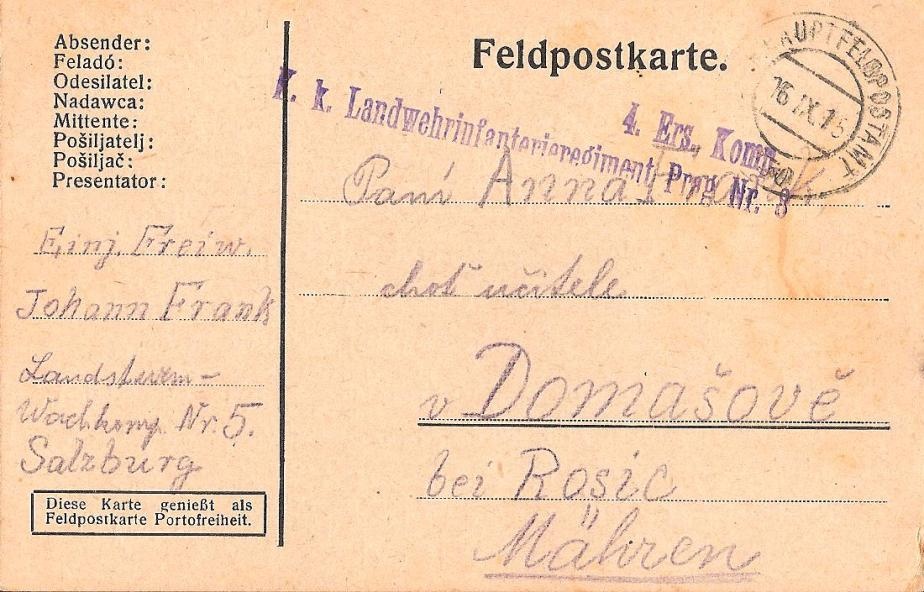 Absender:
Feladó:
Odesílatel:
Nadawca:
Mittente:
Pošiljatelj:
Pošiljač:
Presentator:
Einj. Freiw.
Johann Frank
Landsturm-
Wachkomp. Nr. 5.
Salzburg
Diese Karte genießt als
Feldpostkarte Portofreiheit.
Feldpostkarte.
HAUPTFELDPOSTAMT
16. IX. 15
4. Ers. Komp.
K. k. Landwehrinfanterieregiment Prag Nr. 8
Paní Anna
choť učitele
v Domašově
bei Rosic
Mähren